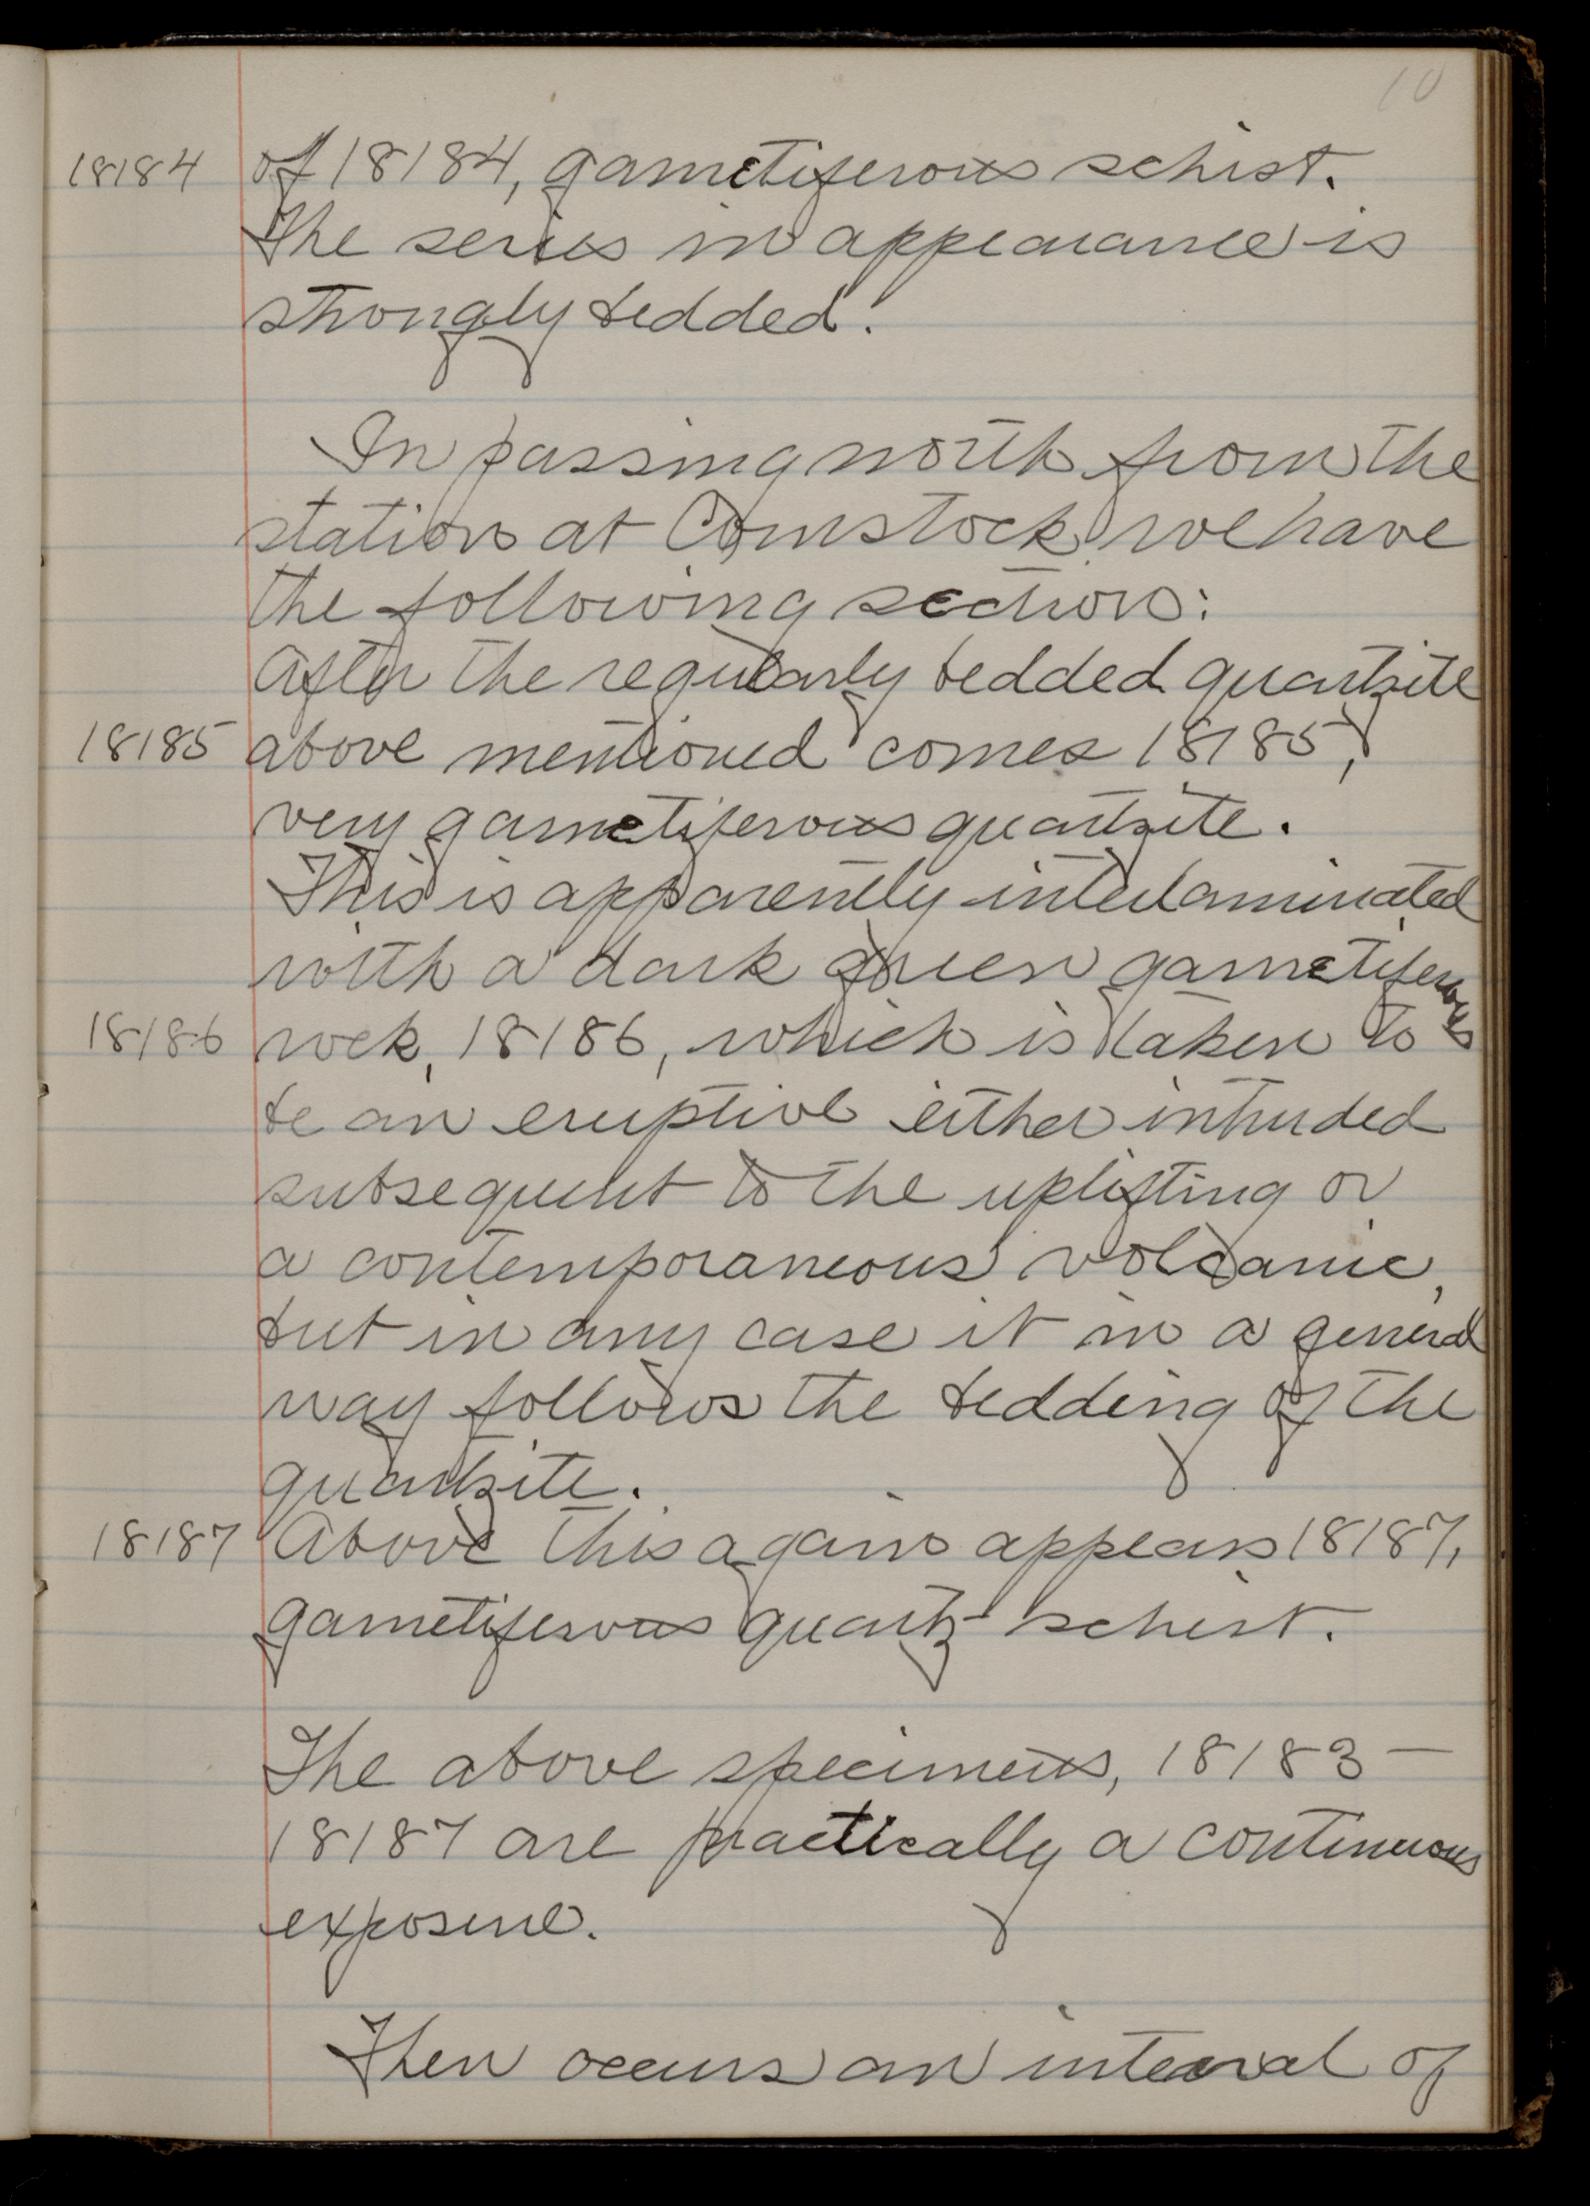 10
18184 of 18184, garnetiferous schist.
The series in appearance is
strongly bedded.
In passing north from the
station at Comstock we have
the following section:
After the regularly bedded quartzite
18185 above mentioned comes 18185,
very garnetiferous quartzite.
This is apparently interlaminated
with a dark green garnetiferous
18186 rock, 18186, which is taken to
be an eruptive either intruded
subsequent to the uplifting or
a contemporaneous volcanic,
but in any case it in a general
way follows the bedding of the
quartzite.
18187 Above this again appears 18187,
garnetiferous quartz-schist.
The above specimens, 18183 —
18187 are practically a continuous
exposure.
Then occurs an interval of